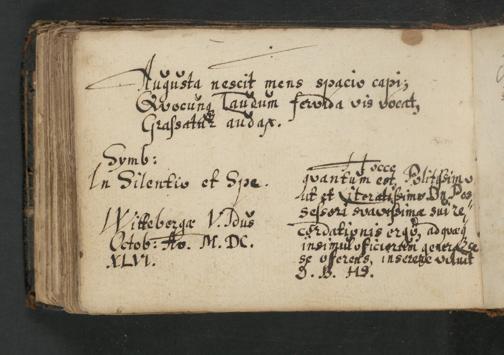 Augusta nescit mens spacio capi;
Qvocunq Laudum fervida vis vocat,
Grassatur audax.
Symb:
In Silentio et Spe.
Wittebergæ V. Idus
Octob: Ao. M. DC.
XLVI.
Hocce
quantum est Politissimo
Literatissimo Dn. Pos-
sessori svavissimæ sui re-
cordationis ergò, adqvæq
insimul officiorum genera
se offerens, inserere voluit